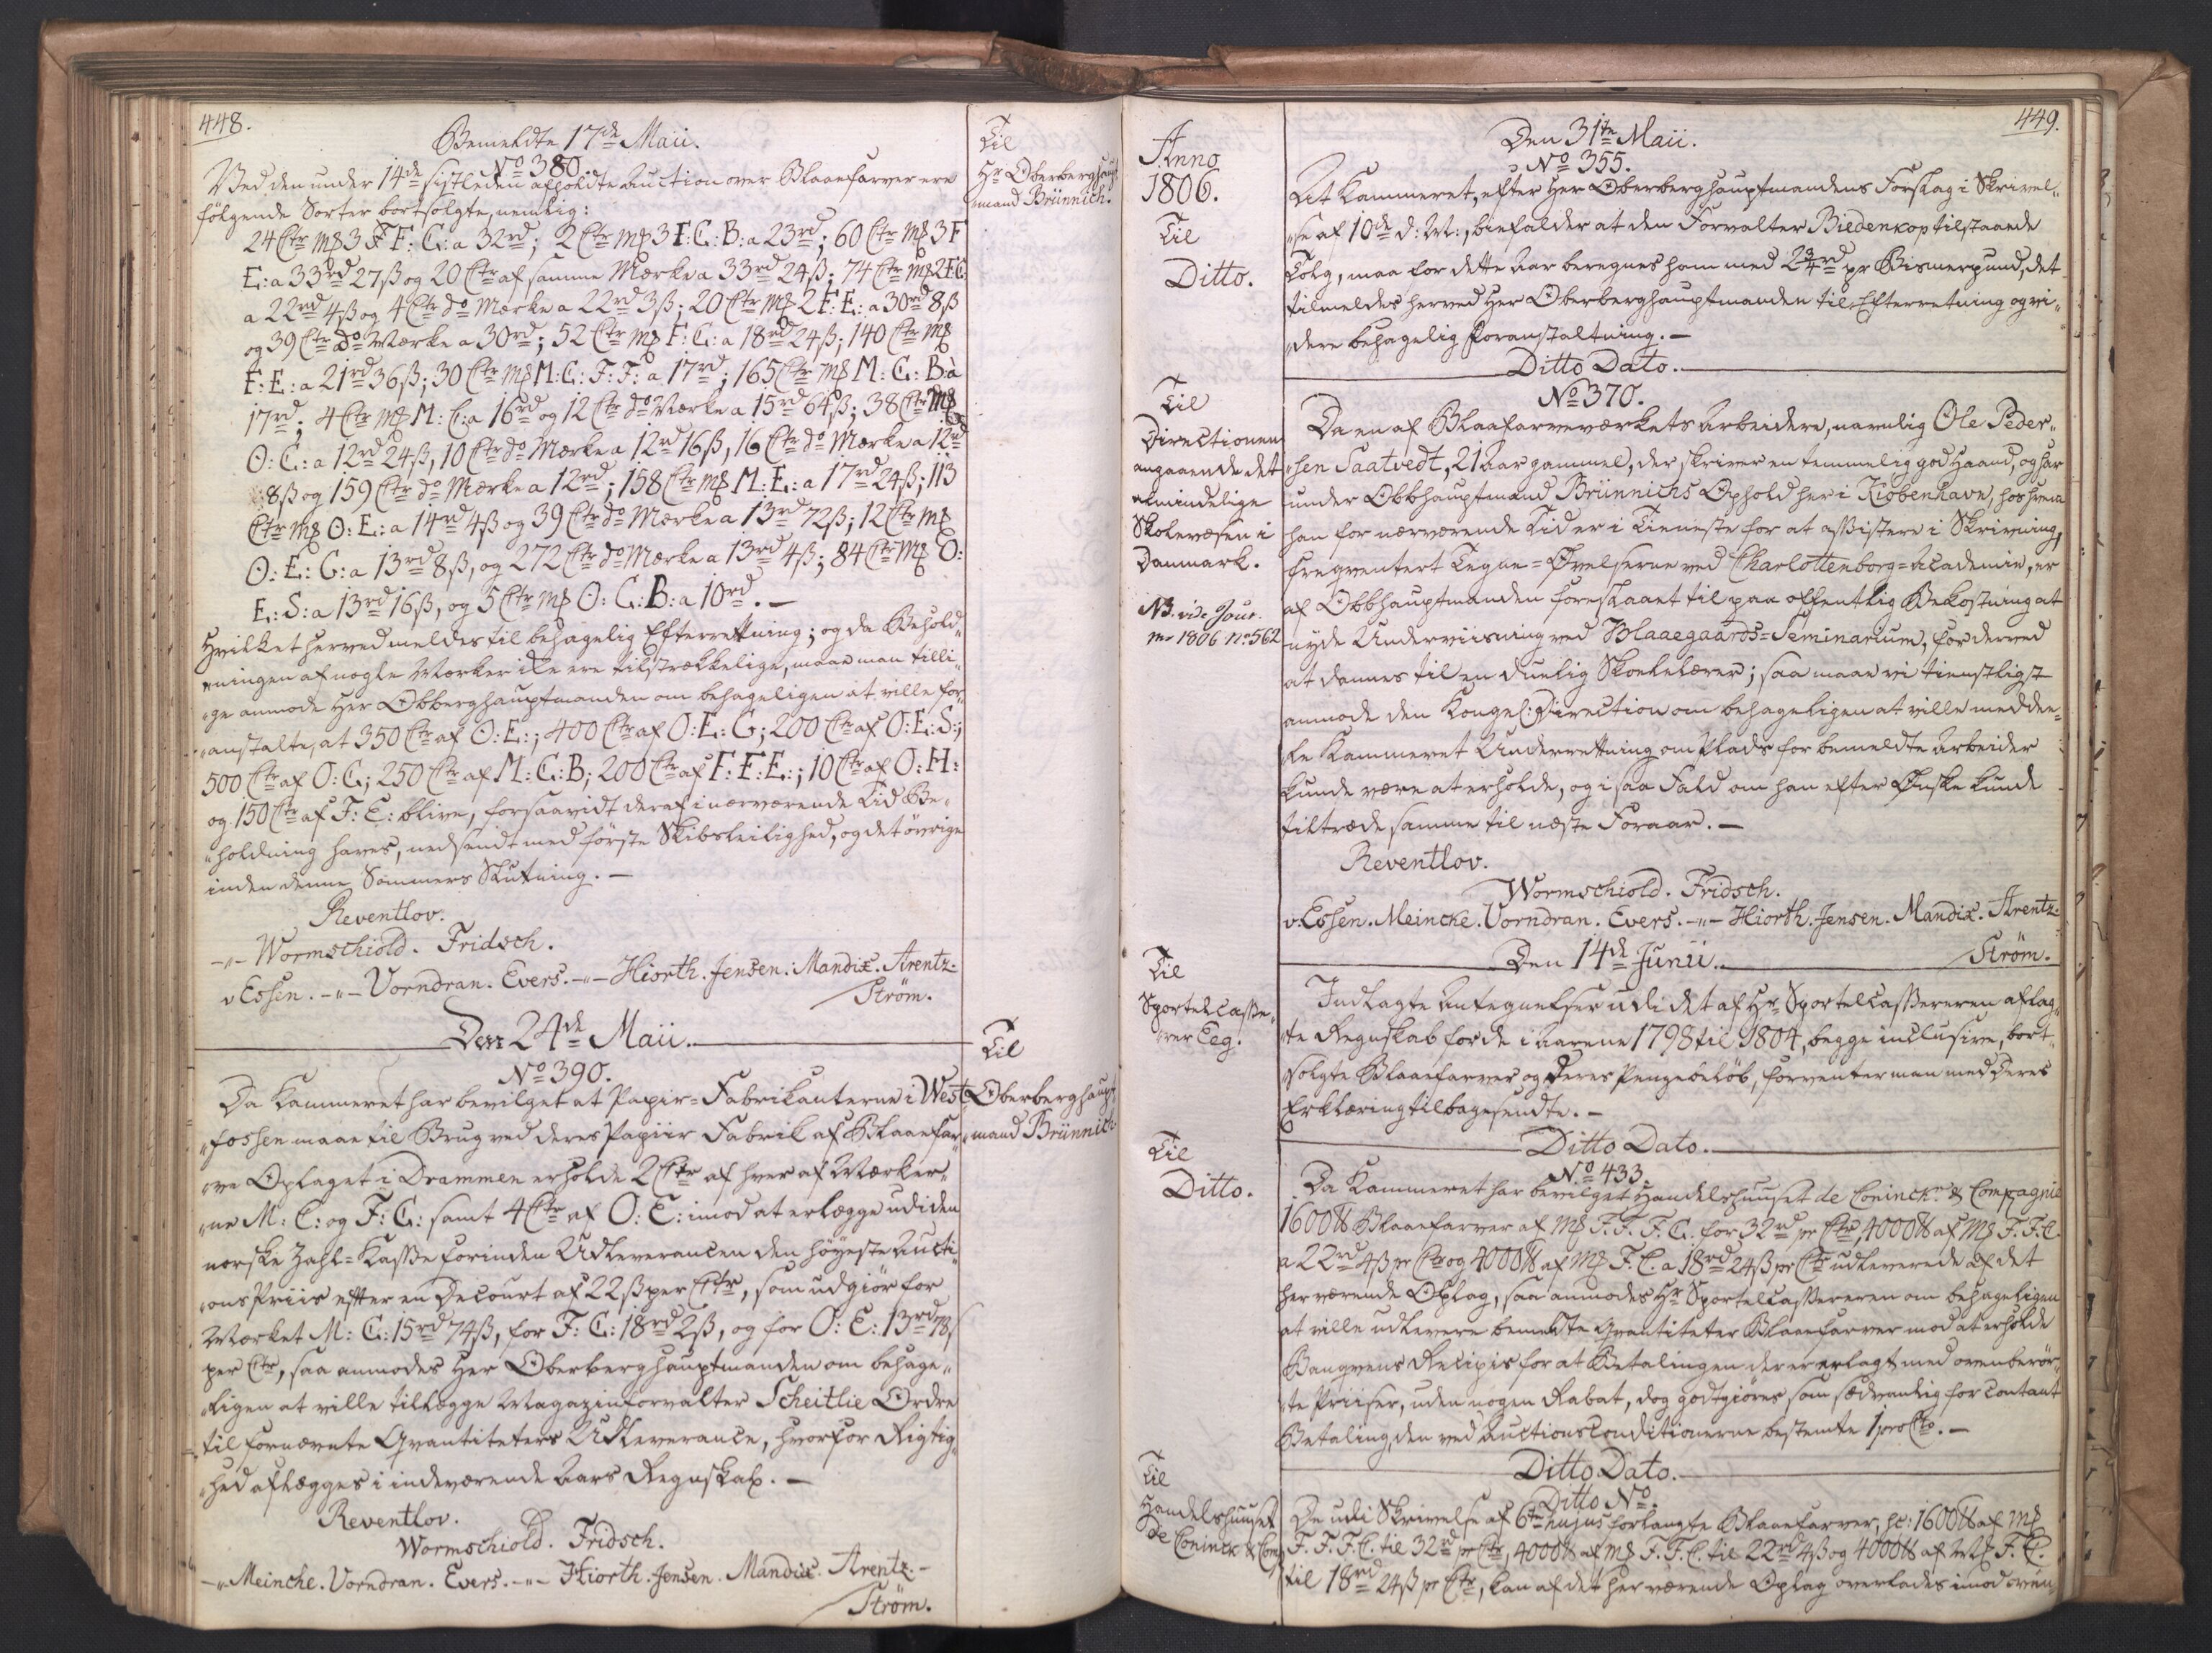 448.
Bemeldte 17de Maii.
No 380.
Til
Hr Oberberghaupt-
mand Brünnich.
Ved den under 14de sistleden afholdte Auction over Blaaefarver ere
følgende Sorter bortsolgte, nemlig:
24 Ctr Mk 3 F F: C: a 32rd; 2 Ctr Mk 3 F. C: B: a 23rd; 60 Ctr Mk 3 F
E: a 33rd 27ß og 20 Ctr af samme Mærke a 33rd 24ß; 74 Ctr Mk 2 F. C:
a 22rd 4ß og 4 Ctr do Mærke a 22rd 3ß; 20 Ctr Mk 2 F: E: a 30rd 8ß
og 39 Ctr do Mærke a 30rd; 52 Ctr Mk F: C: a 18rd 24ß; 140 Ctr Mk
F: E: a 21rd 36ß; 30 Ctr Mk M: C: F: F: a 17rd; 165 Ctr Mk M: C: B: à
17rd; 4 Ctr Mk M: C: a 16rd og 12 Ctr do Mærke a 15rd 64ß; 38 Ctr Mk
O: C: a 12rd 24ß, 10 Ctr do Mærke a 12rd 16ß, 16 Ctr do Mærke a 12rd
8ß og 159 Ctr do Mærke a 12rd; 158 Ctr Mk M: E: a 17rd 24ß; 113
Ctr Mk O: E: a 14rd 4ß og 39 Ctr do Mærke a 13rd 72ß; 12 Ctr Mk
O: E: G: a 13rd 8ß, og 272 Ctr do Mærke a 13rd 4ß; 84 Ctr Mk O:
E: S: a 13rd 16ß, og 5 Ctr Mk O: C: B: a 10rd. —
Hvilket herved meldes til behagelig Efterretning; og da Behold-
„ningen af nogle Mærker ikke ere tilstrækkelige, maae man tilli-
„ge anmode Her Obberghauptmanden om behageligen at ville for-
„anstalte, at 350 Ctr af O: E:; 400 Ctr af O: E: G; 200 Ctr af O: E: S:;
500 Ctr af O: C; 250 Ctr af M: C: B; 200 Ctr af F: F: E:; 10 Ctr af O: H:
og 150 Ctr af F: E: blive, forsaavidt deraf i nærværende Tid Be-
„holdning haves, nedsendt med første Skibsleilighed, og det øvrige
inden denne Sommers Slutning. —
Reventlov.
-"- Wormschiold. Fridsch.
v Essen. -"- Vorndran. Evers. -"- Hiorth. Jensen: Mandix. Arentz:
Strøm.
Den 24de Maii.
No 390.
Til
Oberberghaupt-
„mand Brünnich.
Da Kammeret har bevilget at Papir-Fabrikanterne i West-
„fossen maae til Brug ved deres Papiir Fabrik af Blaaefar-
„ve Oplaget i Drammen erholde 2 Ctr af hver af Mærker-
„ne M: C: og F: C: samt 4 Ctr af O: E: imod at erlægge udi den
norske Zahl-Kasse forinden Udleverancen den høyeste Aucti-
„ons Priis efter en Decourt af 22ß per Ctr, som udgiør for
Mærket M: C: 15rd 74ß, for F: C: 18rd 2ß, og for O: E: 13rd 78ß
per Ctr, saa anmodes Her Oberberghauptmanden om behage-
„ligen at ville tillægge Magazinforvalter Scheitlie Ordre
til fornævnte Qvantiteters Udleverance, hvorfor Rigtig-
„hed aflægges i indeværende Aars Regnskab. —
Reventlov.
Wormschiold. Fridsch.
-"- Meincke. Vorndran. Evers. -"- Hiorth. Jensen. Mandix. Arentz. -
Strøm.
449.
Anno
1806.
Til
Ditto.
Den 31te Maii.
No 355.
At Kammeret, efter Her Oberberghauptmandens Forslag i Skrivel-
„se af 10de d: M:, biefalder at den Forvalter Biedenkop tilstaaede
Talg, maa for dette Aar beregnes ham med 2¾rd pr Bismerpund, det
tilmeldes herved Her Oberberghauptmanden til Efterretning og vi-
„dere behagelig Foranstaltning. —
Ditto Dato.
No 370.
Til
Directionen
angaaende det
almindelige
Skolevæsen i
Danmark.
NB. vide Jour.
1806 no 562
Da en af Blaafarveværkets Arbeidere, navnlig Ole Peder-
„sen Saatvedt, 21 Aar gammel, der skriver en temmelig god Haand, og har
under Obbhauptmand Brünnichs Ophold her i Kiøbenhavn, hos hvem
han for nærværende Tid er i Tieneste for at assistere i Skrivning,
freqventert Tegne-Øvelserne ved Charlottenborg-Academie, er
af Obbhauptmanden foreslaaet til paa offentlig Bekostning at
nyde Underviisning ved Blaaegaards-Seminarium, for derved
at dannes til en duelig Skolelærer; saa maae vi tienstligst
anmode den Kongel: Direction om behageligen at ville meddee-
le Kammeret Underretning om Plads for bemeldte Arbeider
kunde være at erholde, og i saa Fald om han efter Ønske kunde
tiltræde samme til næste Foraar. —
Reventlov.
Wormschiold. Fridsch.
v. Essen. Meincke. Vorndran. Evers. -"- Hiorth. Jensen. Mandix. Arentz:
Strøm.
Den 14de Junii.
Til
Sportelcasse-
„rer Eeg.
Indlagte Antegnelser udi det af Hr Sportelcassereren aflag-
„te Regnskab for de i Aarene 1798 til 1804, begge inclusive, bort-
„solgte Blaaefarver og deres Pengebeløb, forventer man med Deres
Erklæring tilbagesendte. —
Ditto Dato.
No 433.
Til
Ditto.
Da Kammeret har bevilget Handelshuuset de Coninck & Compagnie
1600 ℔ Blaaefarver af Mk F. F. F. C. for 32rd pr Ctr, 4000 ℔ af Mk F. F. C.
a 22rd 4ß pr Ctr og 4000 ℔ af Mk F. C. a 18rd 24ß pr Ctr udleverede af det
herværende Oplag, saa anmodes Hr Sportelcassereren om behageligen
at ville udlevere bemeldte Qvantiteter Blaaefarver mod at erholde
Banqvens Recipis for at Betalingen derer erlagt med ovenberør-
„te Priiser, uden nogen Rabat, dog godtgiøres som sædvanlig for contant
Betaling, den ved Auctionsconditionerne bestemte 1 pro Cto. —
Ditto Dato.
Ditto No.
Til
Handelshuuset
de Coninck & Comp
De udi Skrivelse af 6te hujus forlangte Blaaefarver, sc: 1600 ℔ af Mk
F. F. F. C. til 32rd pr Ctr, 4000 ℔ af Mk F. F. C. til 22rd 4ß og 4000 ℔ af Mk F. C.
til 18rd 24ß pr Ctr, kan af det her værende Oplag overlades imod oven-